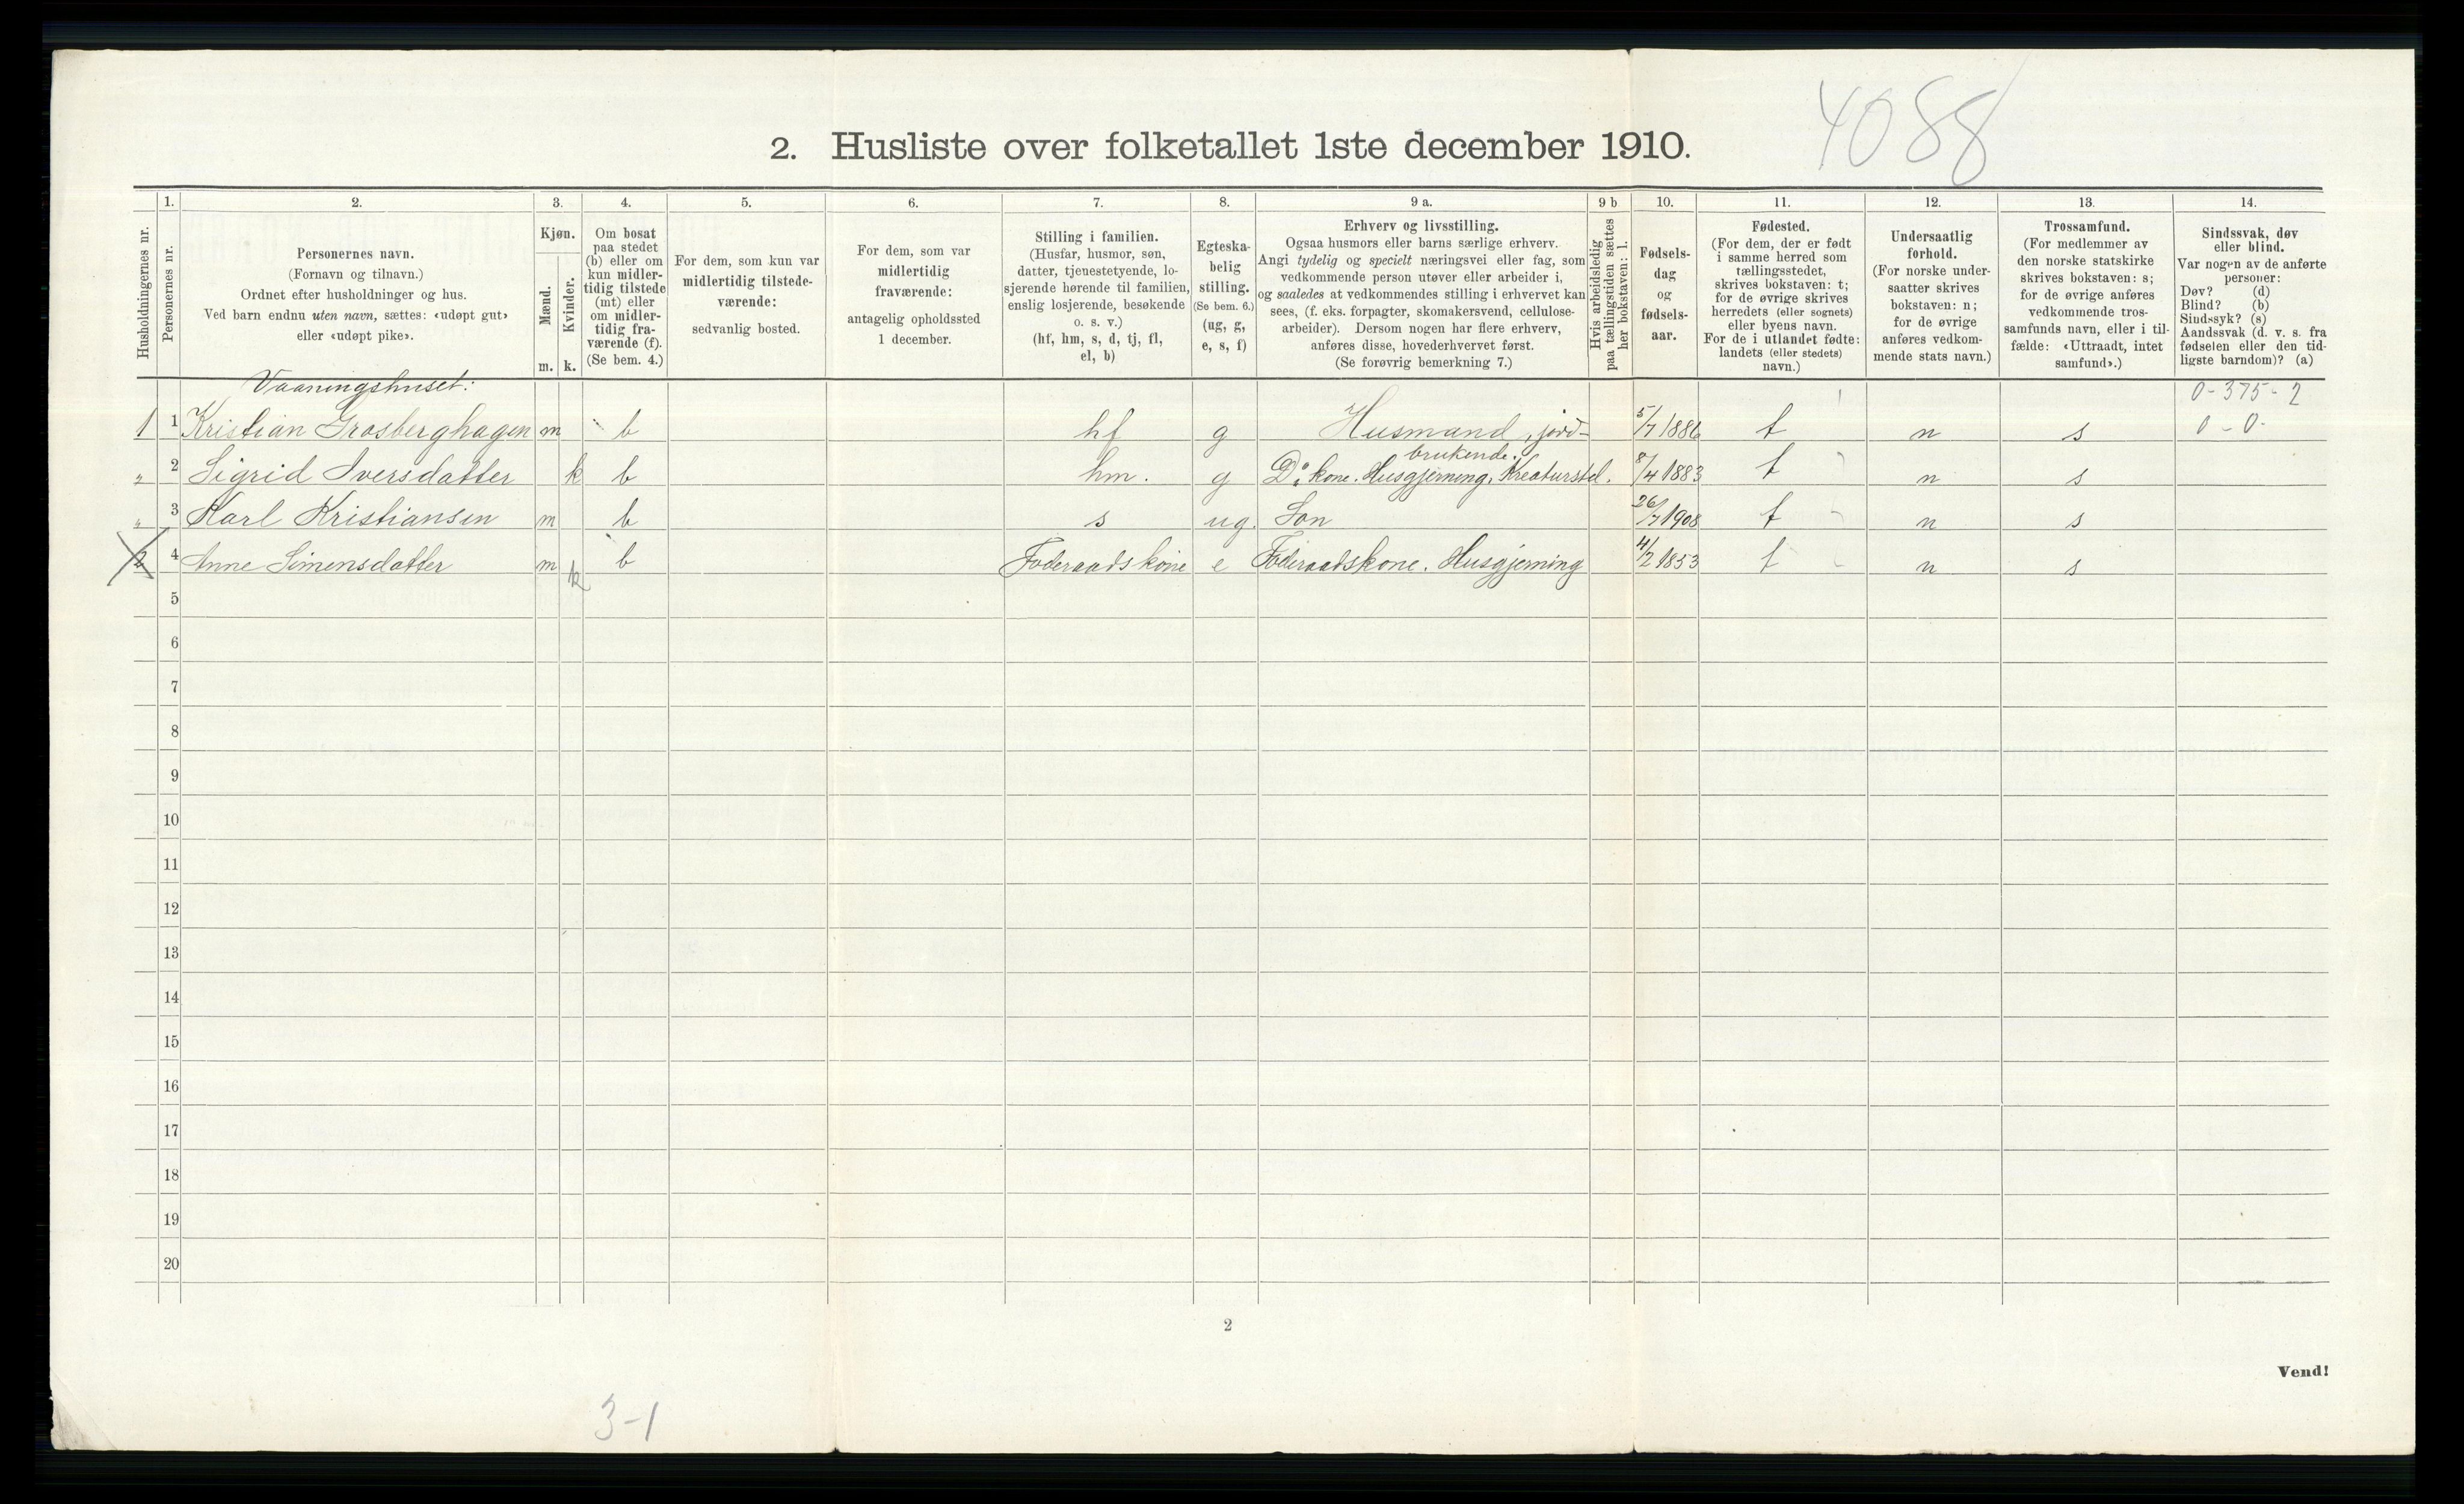 4088
2. Husliste over folketallet 1ste december 1910.
Husholdningernes nr.
1.
Personernes nr.
2.
Personernes navn.
(Fornavn og tilnavn.)
Ordnet efter husholdninger og hus.
Ved barn endnu uten navn, sættes: «udøpt gut»
eller «udøpt pike».
3.
Kjøn.
Mænd.
m.
Kvinder.
k.
4.
Om bosat
paa stedet
(b) eller om
kun midler-
tidig tilstede
(mt) eller
om midler-
tidig fra-
værende (f).
(Se bem. 4.)
5.
For dem, som kun var
midlertidig tilstede-
værende:
sedvanlig bosted.
6.
For dem, som var
midlertidig
fraværende:
antagelig opholdssted
1 december.
7.
Stilling i familien.
(Husfar, husmor, søn,
datter, tjenestetyende, lo-
sjerende hørende til familien,
enslig losjerende, besøkende
o. s. v.)
(hf, hm, s, d, tj, fl,
el, b)
8.
Egteska-
belig
stilling.
(Se bem. 6.)
(ug, g,
e, s, f)
9 a.
Erhverv og livsstilling.
Ogsaa husmors eller barns særlige erhverv.
Angi tydelig og specielt næringsvei eller fag, som
vedkommende person utøver eller arbeider i,
og saaledes at vedkommendes stilling i erhvervet kan
sees, (f. eks. forpagter, skomakersvend, cellulose-
arbeider). Dersom nogen har flere erhverv,
anføres disse, hovederhvervet først.
(Se forøvrig bemerkning 7.)
9 b
Hvis arbeidsledig
paa tællingstiden sættes
her bokstaven: l.
10.
Fødsels-
dag
og
fødsels-
aar.
11.
Fødested.
(For dem, der er født
i samme herred som
tællingsstedet,
skrives bokstaven: t;
for de øvrige skrives
herredets (eller sognets)
eller byens navn.
For de i utlandet fødte:
landets (eller stedets)
navn.)
12.
Undersaatlig
forhold.
(For norske under-
saatter skrives
bokstaven: n;
for de øvrige
anføres vedkom-
mende stats navn.)
13.
Trossamfund.
(For medlemmer av
den norske statskirke
skrives bokstaven: s;
for de øvrige anføres
vedkommende tros-
samfunds navn, eller i til-
fælde: «Uttraadt, intet
samfund».)
14.
Sindssvak, døv
eller blind.
Var nogen av de anførte
personer:
Døv? (d)
Blind? (b)
Sindssyk? (s)
Aandssvak (d. v. s. fra
fødselen eller den tid-
ligste barndom)? (a)
Vaaningshuset: 0-375-2
1 1 Kristian Grosberghagen m b hf g Husmand, jord- 5/7 1886 t n s 0-0-
brukende.
„ 2 Sigrid Iversdatter k b hm. g Do kone. Husgjerning, Kreaturstel. 8/4 1883 t n s
„ 3 Karl Kristiansen m b s ug. Søn 26/7 1908 t n s
2 4 Anne Simensdatter m k b Føderaadskone e Føderaadskone. Husgjerning 4/2 1853 t n s
5
6
7
8
9
10
11
12
13
14
15
16
17
18
19
20
2
Vend!
3-1